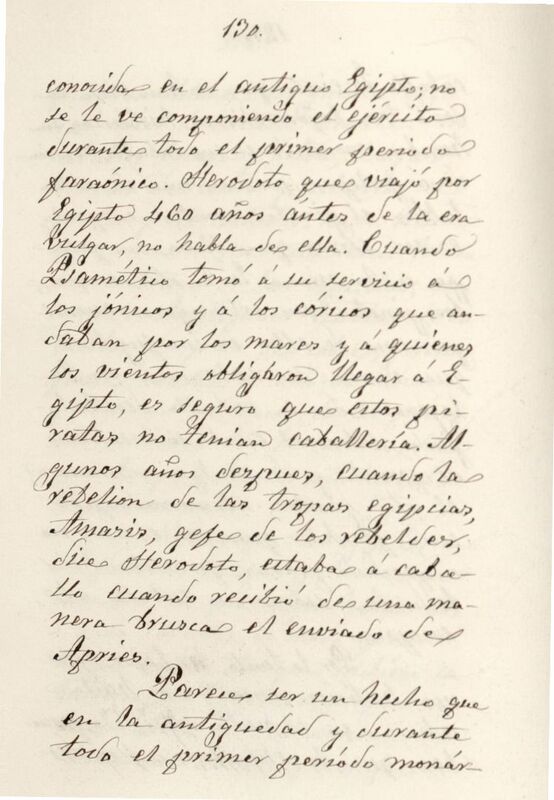 130.
conocida en el antiguo Egipto; no
se le ve componiendo el ejército
durante todo el primer periodo
faraónico. Herodoto que viajó por
Egipto 460 años ántes de la era
vulgar, no habla de ella. Cuando
Psamético tomó á su servicio á
los jónicos y á los córicos que an-
daban por los mares y á quienes
los vientos obligáron llegar á E-
gipto, es seguro que estos pi-
ratas no tenian caballería. Al-
gunos años despues, cuando la
rebelion de las tropas egipcias,
Amasis, gefe de los rebeldes,
dice Herodoto, estaba á caba-
llo cuando recibió de una ma-
nera brusca el enviado de
Apries.
Parece ser un hecho que
en la antiguedad y durante
todo el primer período monár-